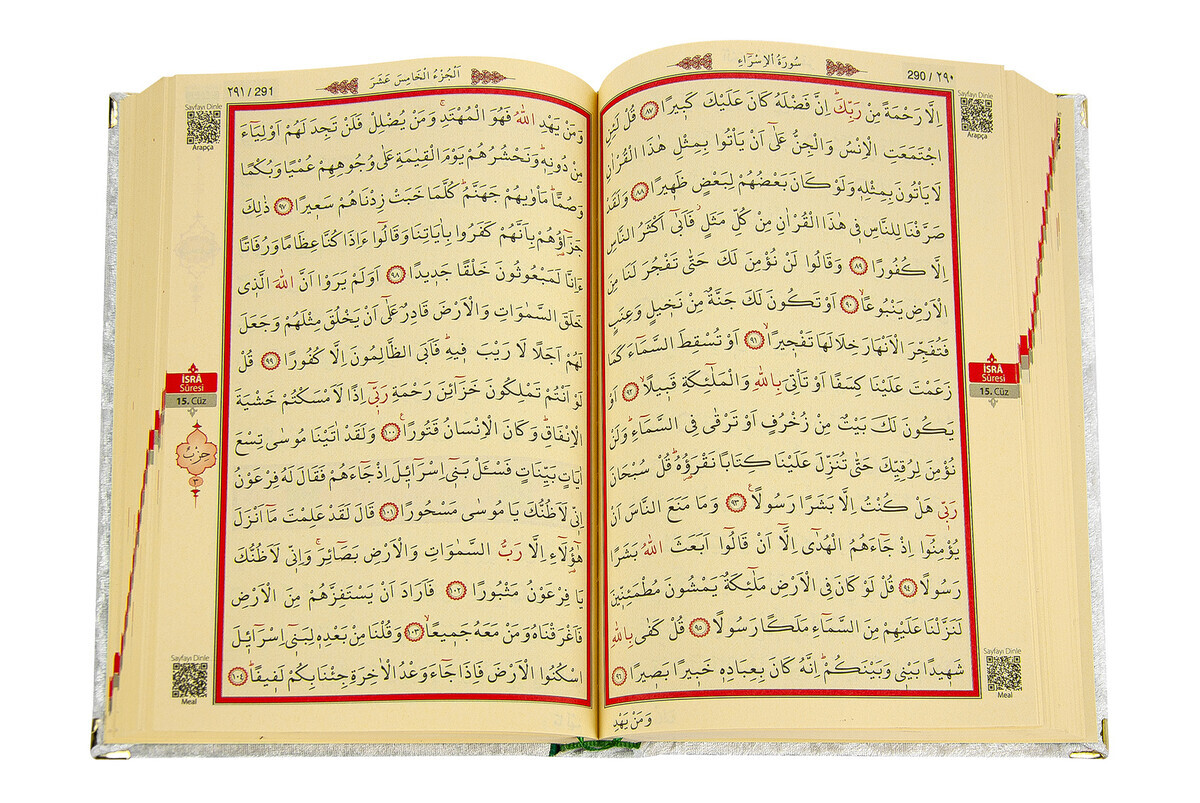 سُورَةُ الْاِسْرَٓاءِ
290 / ٢٩٠
Sayfayı Dinle
Arapça
اِلَّا رَحْمَةً مِنْ رَبِّكَۜ اِنَّ فَضْلَهُ كَانَ عَلَيْكَ كَب۪يرًا ﴿٨٧﴾ قُلْ لَئِنِ
اجْتَمَعَتِ الْاِنْسُ وَالْجِنُّ عَلٰٓى اَنْ يَأْتُوا بِمِثْلِ هٰذَا الْقُرْاٰنِ
لَا يَأْتُونَ بِمِثْلِه۪ وَلَوْ كَانَ بَعْضُهُمْ لِبَعْضٍ ظَه۪يرًا ﴿٨٨﴾ وَلَقَدْ
صَرَّفْنَا لِلنَّاسِ ف۪ي هٰذَا الْقُرْاٰنِ مِنْ كُلِّ مَثَلٍۘ فَاَبٰٓى اَكْثَرُ النَّاسِ
اِلَّا كُفُورًا ﴿٨٩﴾ وَقَالُوا لَنْ نُؤْمِنَ لَكَ حَتّٰى تَفْجُرَ لَنَا مِنَ
الْاَرْضِ يَنْبُوعًاۙ ﴿٩٠﴾ اَوْ تَكُونَ لَكَ جَنَّةٌ مِنْ نَخ۪يلٍ وَعِنَبٍ
فَتُفَجِّرَ الْاَنْهَارَ خِلَالَهَا تَفْج۪يرًاۙ ﴿٩١﴾ اَوْ تُسْقِطَ السَّمَٓاءَ كَمَا
زَعَمْتَ عَلَيْنَا كِسَفًا اَوْ تَأْتِيَ بِاللّٰهِ وَالْمَلٰٓئِكَةِ قَب۪يلًاۙ ﴿٩٢﴾ اَوْ
يَكُونَ لَكَ بَيْتٌ مِنْ زُخْرُفٍ اَوْ تَرْقٰى فِي السَّمَٓاءِۜ وَلَنْ
نُؤْمِنَ لِرُقِيِّكَ حَتّٰى تُنَزِّلَ عَلَيْنَا كِتَابًا نَقْرَؤُ۬هُۜ قُلْ سُبْحَانَ
رَبّ۪ي هَلْ كُنْتُ اِلَّا بَشَرًا رَسُولًا۟ ﴿٩٣﴾ وَمَا مَنَعَ النَّاسَ اَنْ
يُؤْمِنُٓوا اِذْ جَٓاءَهُمُ الْهُدٰٓى اِلَّٓا اَنْ قَالُٓوا اَبَعَثَ اللّٰهُ بَشَرًا
رَسُولًا ﴿٩٤﴾ قُلْ لَوْ كَانَ فِي الْاَرْضِ مَلٰٓئِكَةٌ يَمْشُونَ مُطْمَئِنّ۪ينَ
لَنَزَّلْنَا عَلَيْهِمْ مِنَ السَّمَٓاءِ مَلَكًا رَسُولًا ﴿٩٥﴾ قُلْ كَفٰى بِاللّٰهِ
شَه۪يدًا بَيْن۪ي وَبَيْنَكُمْۜ اِنَّهُ كَانَ بِعِبَادِه۪ خَب۪يرًا بَص۪يرًا ﴿٩٦﴾
وَمَنْ يَهْدِ
İSRÂ
Sûresi
15. Cüz
Sayfayı Dinle
Meal
اَلْجُزْءُ الْخَامِسَ عَشَرَ
٢٩١ / 291
Sayfayı Dinle
Arapça
وَمَنْ يَهْدِ اللّٰهُ فَهُوَ الْمُهْتَدِۚ وَمَنْ يُضْلِلْ فَلَنْ تَجِدَ لَهُمْ اَوْلِيَٓاءَ
مِنْ دُونِه۪ۜ وَنَحْشُرُهُمْ يَوْمَ الْقِيٰمَةِ عَلٰى وُجُوهِهِمْ عُمْيًا وَبُكْمًا
وَصُمًّاۜ مَأْوٰيهُمْ جَهَنَّمُۜ كُلَّمَا خَبَتْ زِدْنَاهُمْ سَع۪يرًا ﴿٩٧﴾ ذٰلِكَ
جَزَٓاؤُ۬هُمْ بِاَنَّهُمْ كَفَرُوا بِاٰيَاتِنَا وَقَالُٓوا ءَاِذَا كُنَّا عِظَامًا وَرُفَاتًا
ءَاِنَّا لَمَبْعُوثُونَ خَلْقًا جَد۪يدًا ﴿٩٨﴾ اَوَلَمْ يَرَوْا اَنَّ اللّٰهَ الَّذ۪ي
خَلَقَ السَّمٰوَاتِ وَالْاَرْضَ قَادِرٌ عَلٰٓى اَنْ يَخْلُقَ مِثْلَهُمْ وَجَعَلَ
لَهُمْ اَجَلًا لَا رَيْبَ ف۪يهِۜ فَاَبَى الظَّالِمُونَ اِلَّا كُفُورًا ﴿٩٩﴾ قُلْ
لَوْ اَنْتُمْ تَمْلِكُونَ خَزَٓائِنَ رَحْمَةِ رَبّ۪ٓي اِذًا لَاَمْسَكْتُمْ خَشْيَةَ
الْاِنْفَاقِۜ وَكَانَ الْاِنْسَانُ قَتُورًا۟ ﴿١٠٠﴾ وَلَقَدْ اٰتَيْنَا مُوسٰى تِسْعَ
اٰيَاتٍ بَيِّنَاتٍ فَسْـَٔلْ بَن۪ٓي اِسْرَٓائ۪لَ اِذْ جَٓاءَهُمْ فَقَالَ لَهُ فِرْعَوْنُ
اِنّ۪ي لَاَظُنُّكَ يَا مُوسٰى مَسْحُورًا ﴿١٠١﴾ قَالَ لَقَدْ عَلِمْتَ مَٓا اَنْزَلَ
هٰٓؤُ۬لَٓاءِ اِلَّا رَبُّ السَّمٰوَاتِ وَالْاَرْضِ بَصَٓائِرَۚ وَاِنّ۪ي لَاَظُنُّكَ
يَا فِرْعَوْنُ مَثْبُورًا ﴿١٠٢﴾ فَاَرَادَ اَنْ يَسْتَفِزَّهُمْ مِنَ الْاَرْضِ
فَاَغْرَقْنَاهُ وَمَنْ مَعَهُ جَم۪يعًاۙ ﴿١٠٣﴾ وَقُلْنَا مِنْ بَعْدِه۪ لِبَن۪ٓي اِسْرَٓائ۪لَ
اسْكُنُوا الْاَرْضَ فَاِذَا جَٓاءَ وَعْدُ الْاٰخِرَةِ جِئْنَا بِكُمْ لَف۪يفًاۜ ﴿١٠٤﴾
İSRÂ
Sûresi
15. Cüz
حِزْب
٣
Sayfayı Dinle
Meal